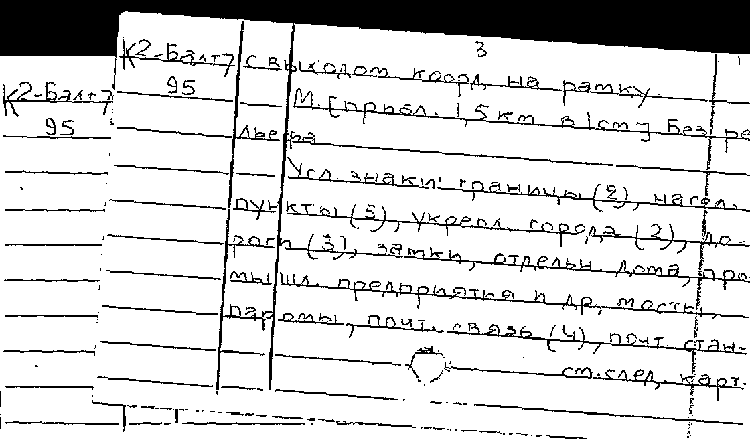 3
К2-Балт7
95
с выходом коорд. на рамку.
М. [прибл. 1,5 км в 1 см] Без ре
льефа
Усл. знаки: границы (2), насел.
пункты (5), укрепл. города (2), до-
роги (3), замки, отдельн дома, про
мышл. предприятия и др, мосты,
паромы, почт. связь (4), почт стан-
см.след. карт.
К2-Балт7
95